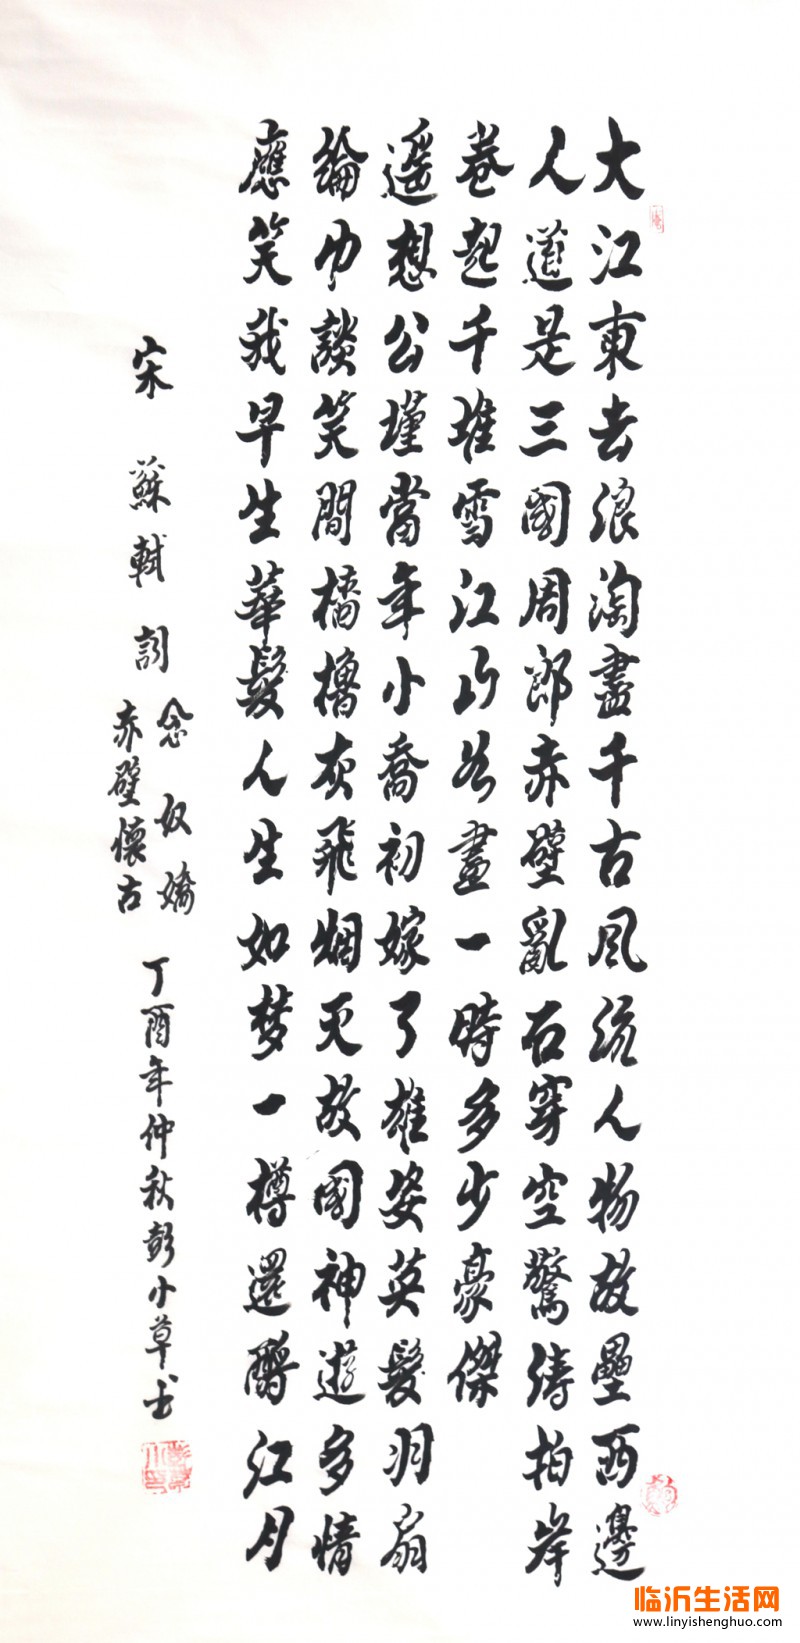 大江東去浪淘盡千古風流人物故壘西邊
人道是三國周郎赤壁亂石穿空驚濤拍岸
卷起千堆雪江山如畫一時多少豪傑
遥想公瑾當年小喬初嫁了雄姿英髮羽扇
綸巾談笑間檣櫓灰飛烟灭故國神遊多情
應笑我早生華髮人生如梦一樽還酹江月
宋 蘇軾詞
念奴嬌
赤壁懷古
丁酉年仲秋彭小草书
临沂生活网
www.linyishenghuo.com